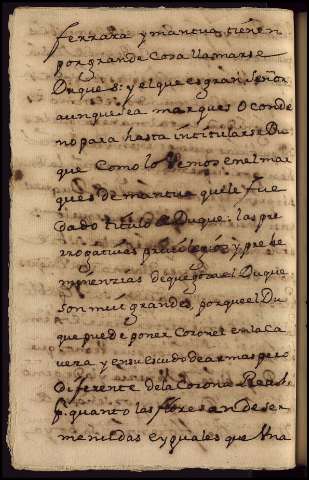 ferrara y mantua, tienen
por grande cosa llamarse
Duques: y el que es gran señor
aunque sea marques o conde
no para hasta intitularse Du
que como lo vemos en el mar
ques de mantua que le fue
dado titulo de Duque: las pre
rrogativas privilegios y prehe
minenzias de que goza el Duque
son mui grandes, porque el Du
que puede poner Coronel en la ca
vera y en su escudo de armas pero
diferente de la Corona Real
p. quanto las flores an de ser
menudas e yguales que una